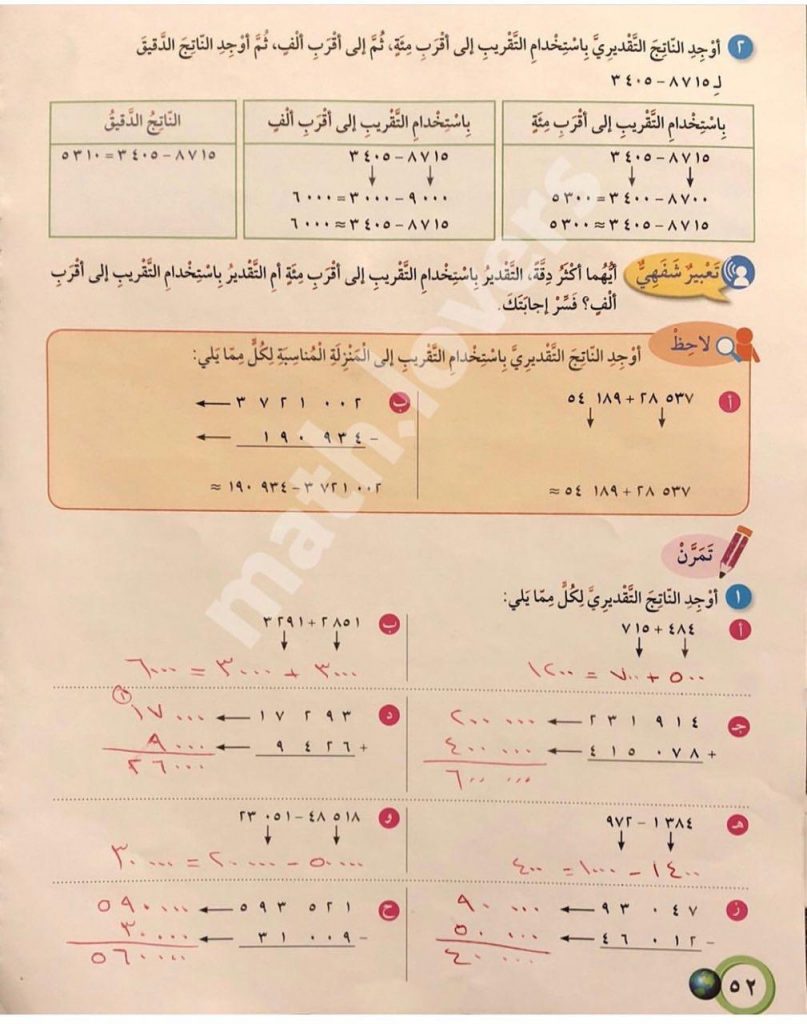 ٢ أَوْجِدِ النّاتِجَ التَّقْديرِيَّ بِاسْتِخْدامِ التَّقْريبِ إلى أقْرَبِ مِئَةٍ، ثُمَّ إلى أقْرَبِ ألْفٍ، ثُمَّ أَوْجِدِ النّاتِجَ الدَّقيقَ
لِـ ٨٧١٥ - ٣٤٠٥
بِاسْتِخْدامِ التَّقْريبِ إلى أقْرَبِ مِئَةٍ
٨٧١٥ - ٣٤٠٥
٨٧٠٠ - ٣٤٠٠ = ٥٣٠٠
٨٧١٥ - ٣٤٠٥ ≈ ٥٣٠٠
بِاسْتِخْدامِ التَّقْريبِ إلى أقْرَبِ ألْفٍ
٨٧١٥ - ٣٤٠٥
٩٠٠٠ - ٣٠٠٠ = ٦٠٠٠
٨٧١٥ - ٣٤٠٥ ≈ ٦٠٠٠
النّاتِجُ الدَّقيقُ
٨٧١٥ - ٣٤٠٥ = ٥٣١٠
تَعْبيرٌ شَفَهِيٌّ أَيُّهُما أَكْثَرُ دِقَّةً، التَّقْديرُ بِاسْتِخْدامِ التَّقْريبِ إلى أقْرَبِ مِئَةٍ أمِ التَّقْديرُ بِاسْتِخْدامِ التَّقْريبِ إلى أقْرَبِ
ألْفٍ؟ فَسِّرْ إجابَتَكَ.
لاحِظْ
أَوْجِدِ النّاتِجَ التَّقْديرِيَّ بِاسْتِخْدامِ التَّقْريبِ إلى الْمَنْزِلَةِ الْمُناسِبَةِ لِكُلٍّ مِمّا يَلي:
أ ٢٨ ٥٣٧ + ٥٤ ١٨٩
٢٨ ٥٣٧ + ٥٤ ١٨٩ ≈
ب ٣ ٧٢١ ٠٠٢ ←
- ١٩٠ ٩٣٤ ←
٣ ٧٢١ ٠٠٢ - ١٩٠ ٩٣٤ ≈
تَمَرَّنْ
١ أَوْجِدِ النّاتِجَ التَّقْديرِيَّ لِكُلٍّ مِمّا يَلي:
أ ٤٨٤ + ٧١٥
٥٠٠ + ٧٠٠ = ١٢٠٠
ب ٢٨٥١ + ٣٢٩١
٣٠٠٠ + ٣٠٠٠ = ٦٠٠٠
جـ ٢٣١ ٩١٤ ← ٢٠٠ ٠٠٠
+ ٤١٥ ٠٧٨ ← ٤٠٠ ٠٠٠
٦٠٠ ٠٠٠
د ١٧ ٢٩٣ ← ١٧ ٠٠٠
١
+ ٩ ٤٢٦ ← ٩ ٠٠٠
٢٦ ٠٠٠
هـ ١٣٨٤ - ٩٧٢
١٤٠٠ - ١٠٠٠ = ٤٠٠
و ٤٨ ٥١٨ - ٢٣ ٠٥١
٥٠ ٠٠٠ - ٢٠ ٠٠٠ = ٣٠ ٠٠٠
ز ٩٣ ٠٤٧ ← ٩٠ ٠٠٠
- ٤٦ ٠١٢ ← ٥٠ ٠٠٠
٤٠ ٠٠٠
ح ٥٩٣ ٥٢١ ← ٥٩٠ ٠٠٠
- ٣١ ٠٠٩ ← ٣٠ ٠٠٠
٥٦٠ ٠٠٠
٥٢
math.lovers